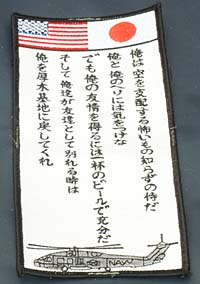 俺は空を支配する怖いもの知らずの侍だ
俺と俺のヘリには気をつけな
でも俺の友情を得るには一杯のビールで充分だ
そして俺達が友達として別れる時は
俺を厚木基地に戻してくれ
NAVY